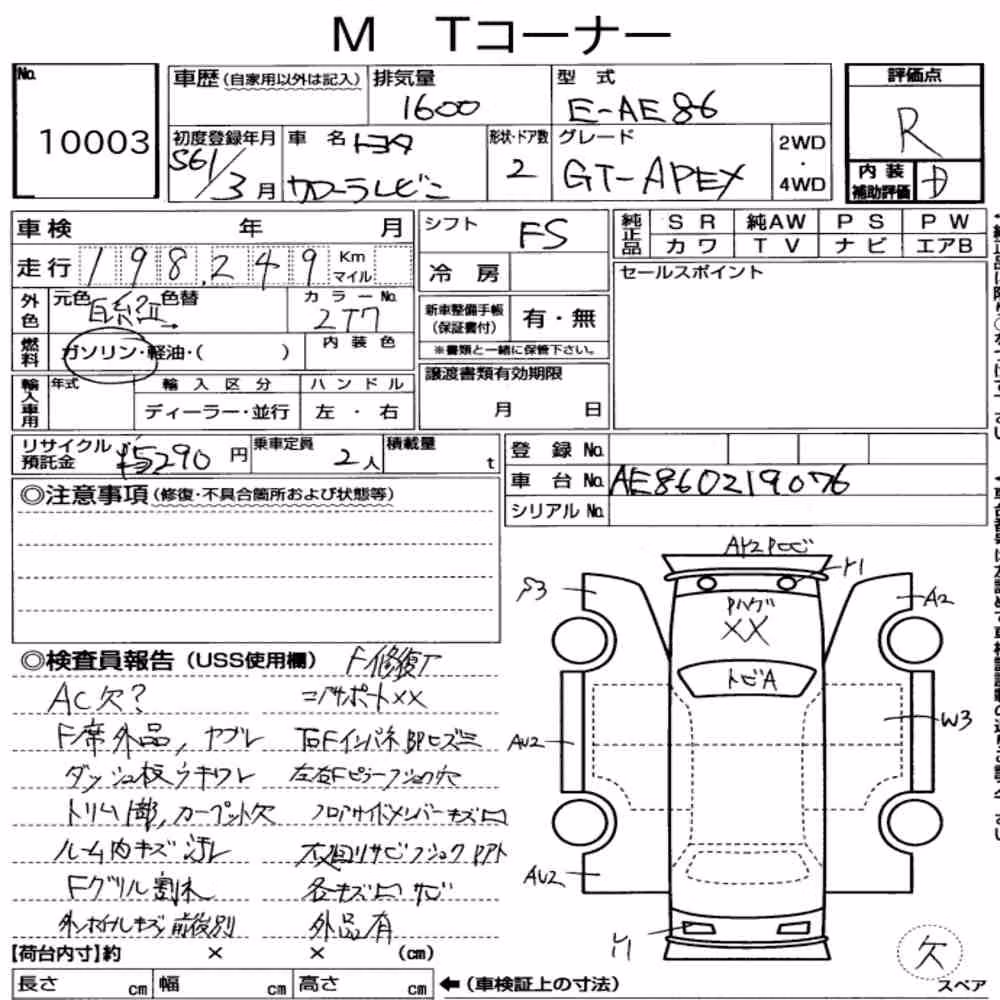 M Tコーナー
No.
10003
車歴 (自家用以外は記入)
排気量
1600
型式
E-AE86
評価点
R
初度登録年月
S61/3月
車名
トヨタ
カローラレビン
形状・ドア数
2
グレード
GT-APEX
2WD
・
4WD
内装
補助評価
D
車検 年 月
走行 198,249 Km
マイル
シフト
FS
冷房
純正品
SR 純AW PS PW
カワ TV ナビ エアB
セールスポイント
外色
元色 色替
カラーNo.
2T7
新車整備手帳
(保証書付)
有・無
※書類と一緒に保管下さい。
燃料
ガソリン・軽油・( )
内装色
輸入車用
年式
輸入区分
ハンドル
ディーラー・並行
左・右
譲渡書類有効期限
月 日
リサイクル
預託金
¥5290円
乗車定員
2人
積載量
t
登録No.
車台No.
AE860219076
シリアルNo.
◎注意事項 (修復・不具合箇所および状態等)
◎検査員報告 (USS使用欄)
F修復了
AC欠?
コアサポートXX
F席外品, ヤブレ
右Fインパネ BPヒズミ
ダッシュ板ウキワレ
左右Fピラーフショク穴
トリム1部, カーペット欠
フロアサイドメンバーキズ凹
ルーム内キズ汚レ
下廻リサビフショクPアト
Fグリル割れ
各キズ凹サビ
外ホイルキズ前後別
外品有
AY2Pサビ
Y1
S3
A2
Pハゲ
XX
トビA
W3
AU2
AU2
Y1
欠
スペア
【荷台内寸】約 × × (cm)
長さ cm 幅 cm 高さ cm
←(車検証上の寸法)